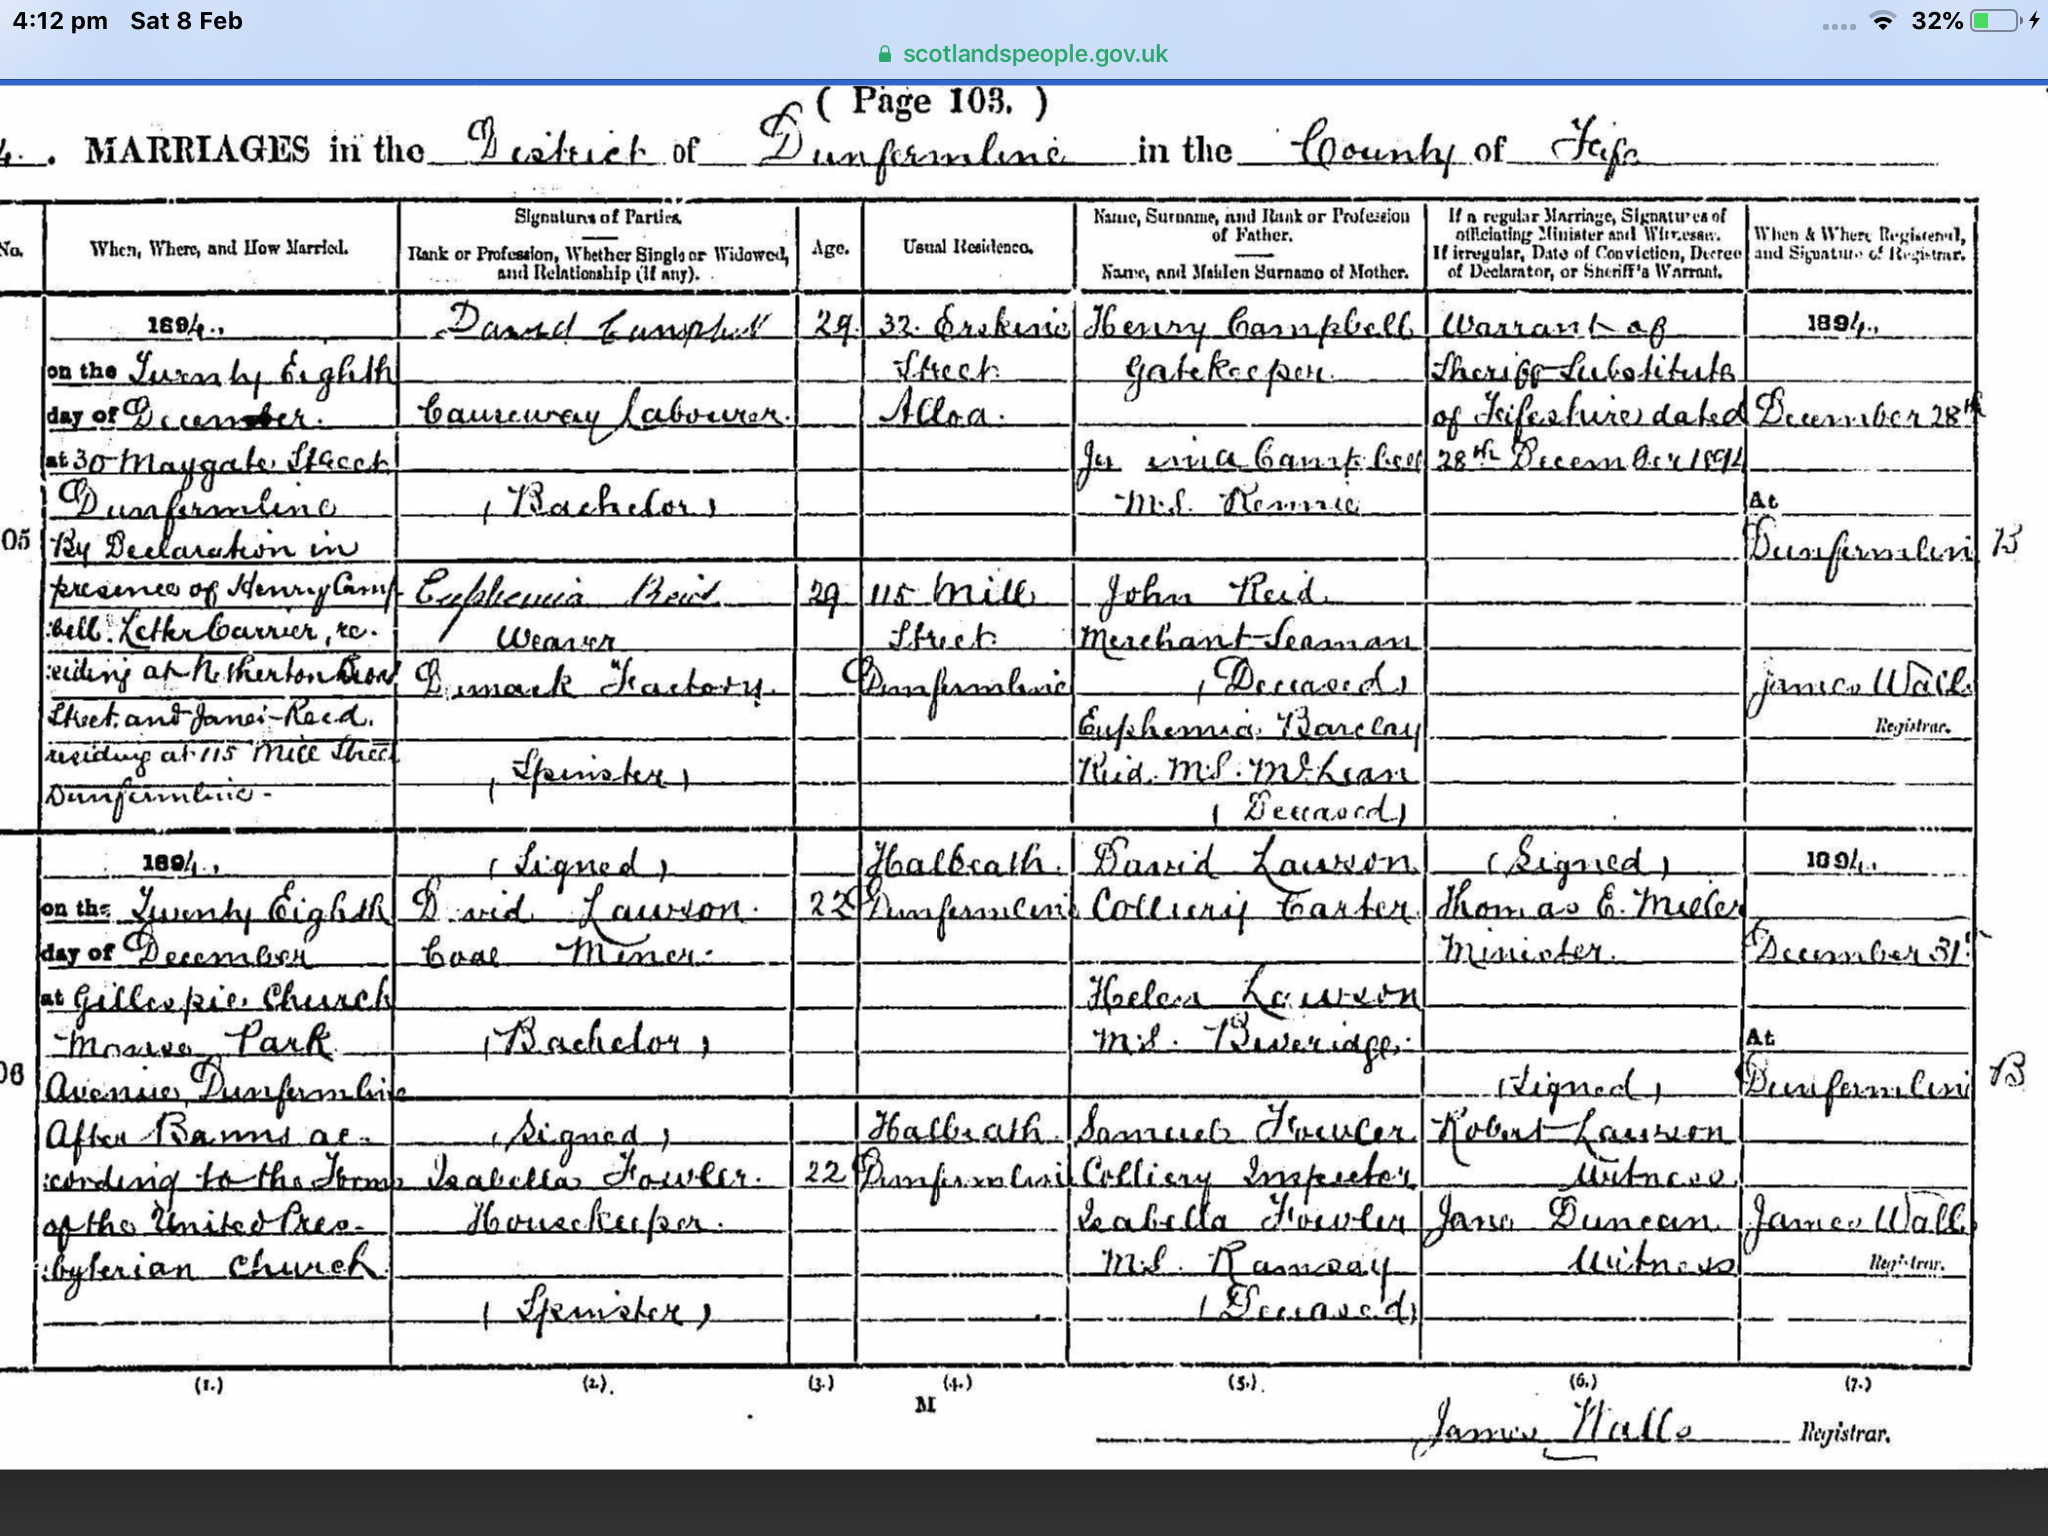 4:12 pm Sat 8 Feb
32%
scotlandspeople.gov.uk
( Page 103. )
MARRIAGES in the District of Dunfermline in the County of Fife
No.
When, Where, and How Married.
Signatures of Parties.
Rank or Profession, Whether Single or Widowed,
and Relationship (if any).
Age.
Usual Residence.
Name, Surname, and Rank or Profession
of Father.
Name, and Maiden Surname of Mother.
If a regular Marriage, Signatures of
officiating Minister and Witnesses.
If irregular, Date of Conviction, Decree
of Declarator, or Sheriff's Warrant.
When & Where Registered,
and Signature of Registrar.
05
1894.,
on the Twenty Eighth
day of December.
at 30 Maygate Street
Dunfermline
By Declaration in
presence of Henry Camp-
bell. Letter Carrier, re-
siding at Netherton Broad
Street. and Janet Reid.
residing at 115 Mill Street
Dunfermline -
David Campbell
Causeway Labourer.
(Bachelor)
Euphemia Reid
Weaver
Damask Factory.
(Spinster)
29.
29
32. Erskine
Street
Alloa.
115 Mill
Street
Dunfermline
Henry Campbell
Gatekeeper.
Campbell
M.S. Rennie
John Reid
Merchant Seaman
(Deceased)
Euphemia Barclay
Reid. M.S. McLean
(Deceased)
Warrant of
Sheriff Substitute
of Fifeshire dated
28th December 1894
1894.,
December 28th
At
Dunfermline
James Walls
Registrar.
B
06
1894.,
on the Twenty Eighth
day of December
at Gillespie Church
Park
Avenue, Dunfermline
After Banns ac-
cording to the Forms
of the United Pres-
byterian Church
(Signed)
David Lawson.
Coal Miner.
(Bachelor)
(Signed)
Isabella Fowler.
Housekeeper.
(Spinster)
22
22
Halbeath.
Dunfermline
Halbeath.
Dunfermline
David Lawson
Colliery Carter.
Helen Lawson
M.S. Beveridge.
Samuel Fowler.
Colliery Inspector
Isabella Fowler
M.S. Ramsay
(Deceased)
(Signed)
Thomas E. Miller
Minister.
(Signed)
Robert Lawson
Witness
Jane Duncan
Witness
1894.
December 31st
At
Dunfermline
James Walls
Registrar.
B
(1.) (2.) (3.) (4.) (5.) (6.) (7.)
M
James Walls Registrar.